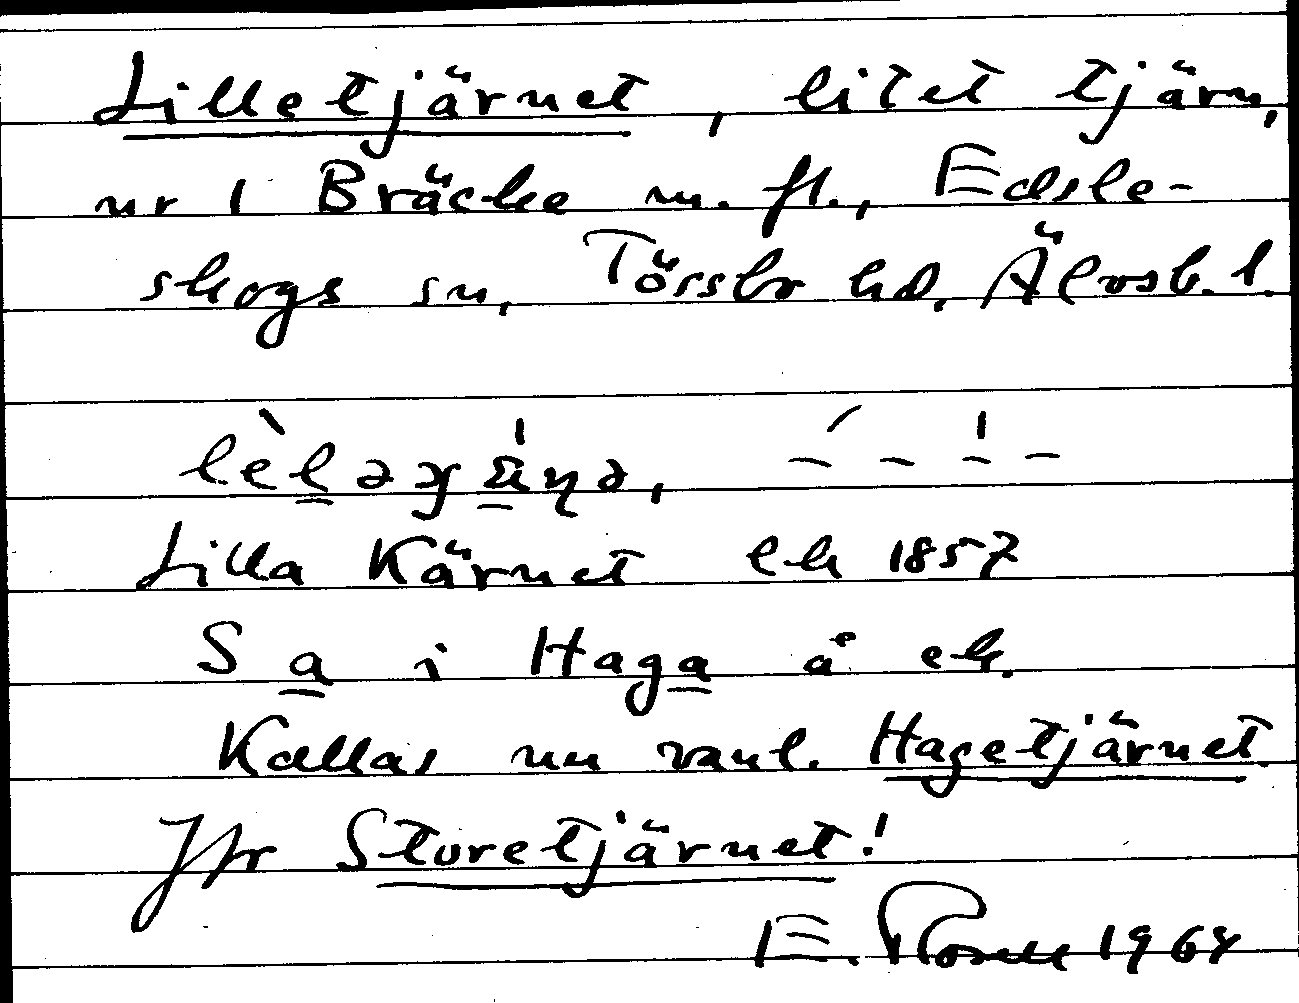 Lilletjärnet, litet tjärn,
nr 1 Bräcke m.fl., Edsle-
skogs sn, Tössbo hd. Älvsb. l.
Lilla Kärnet ek 1857
S a i Haga å ek.
Kallas nu vanl. Hagetjärnet.
Jfr Storetjärnet!
E. 1968